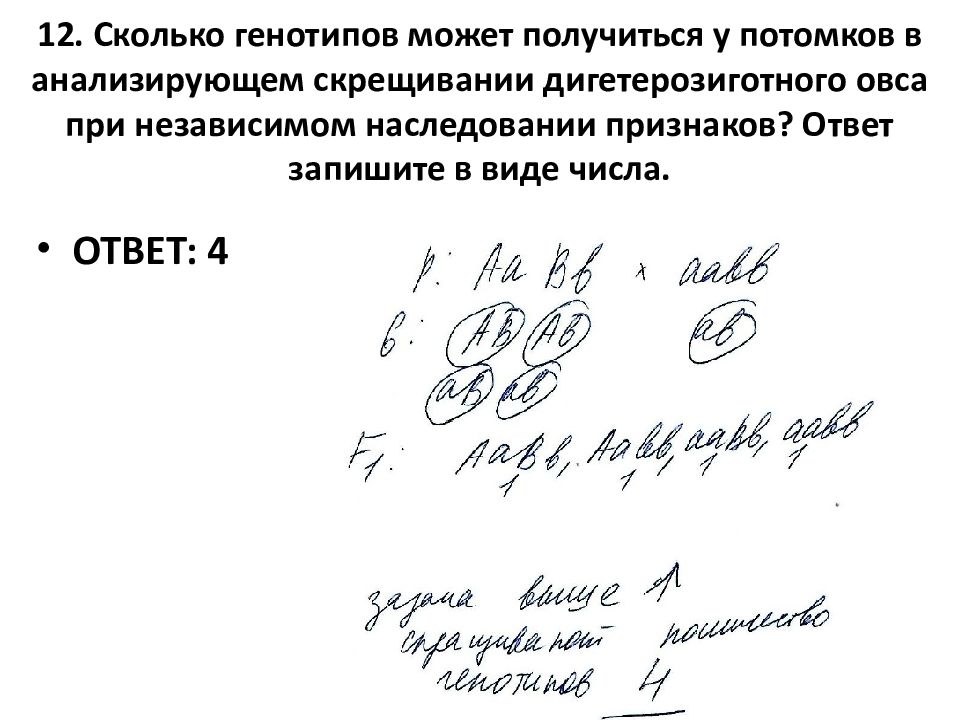 12. Сколько генотипов может получиться у потомков в
анализирующем скрещивании дигетерозиготного овса
при независимом наследовании признаков? Ответ
запишите в виде числа.
• ОТВЕТ: 4
P: Аа Вв х аавв
G: АВ Ав ав
аВ ав
F1: АаВв, Аавв, ааВв, аавв
1 1 1 1
задача выше ↑
спрашивают количество
генотипов 4